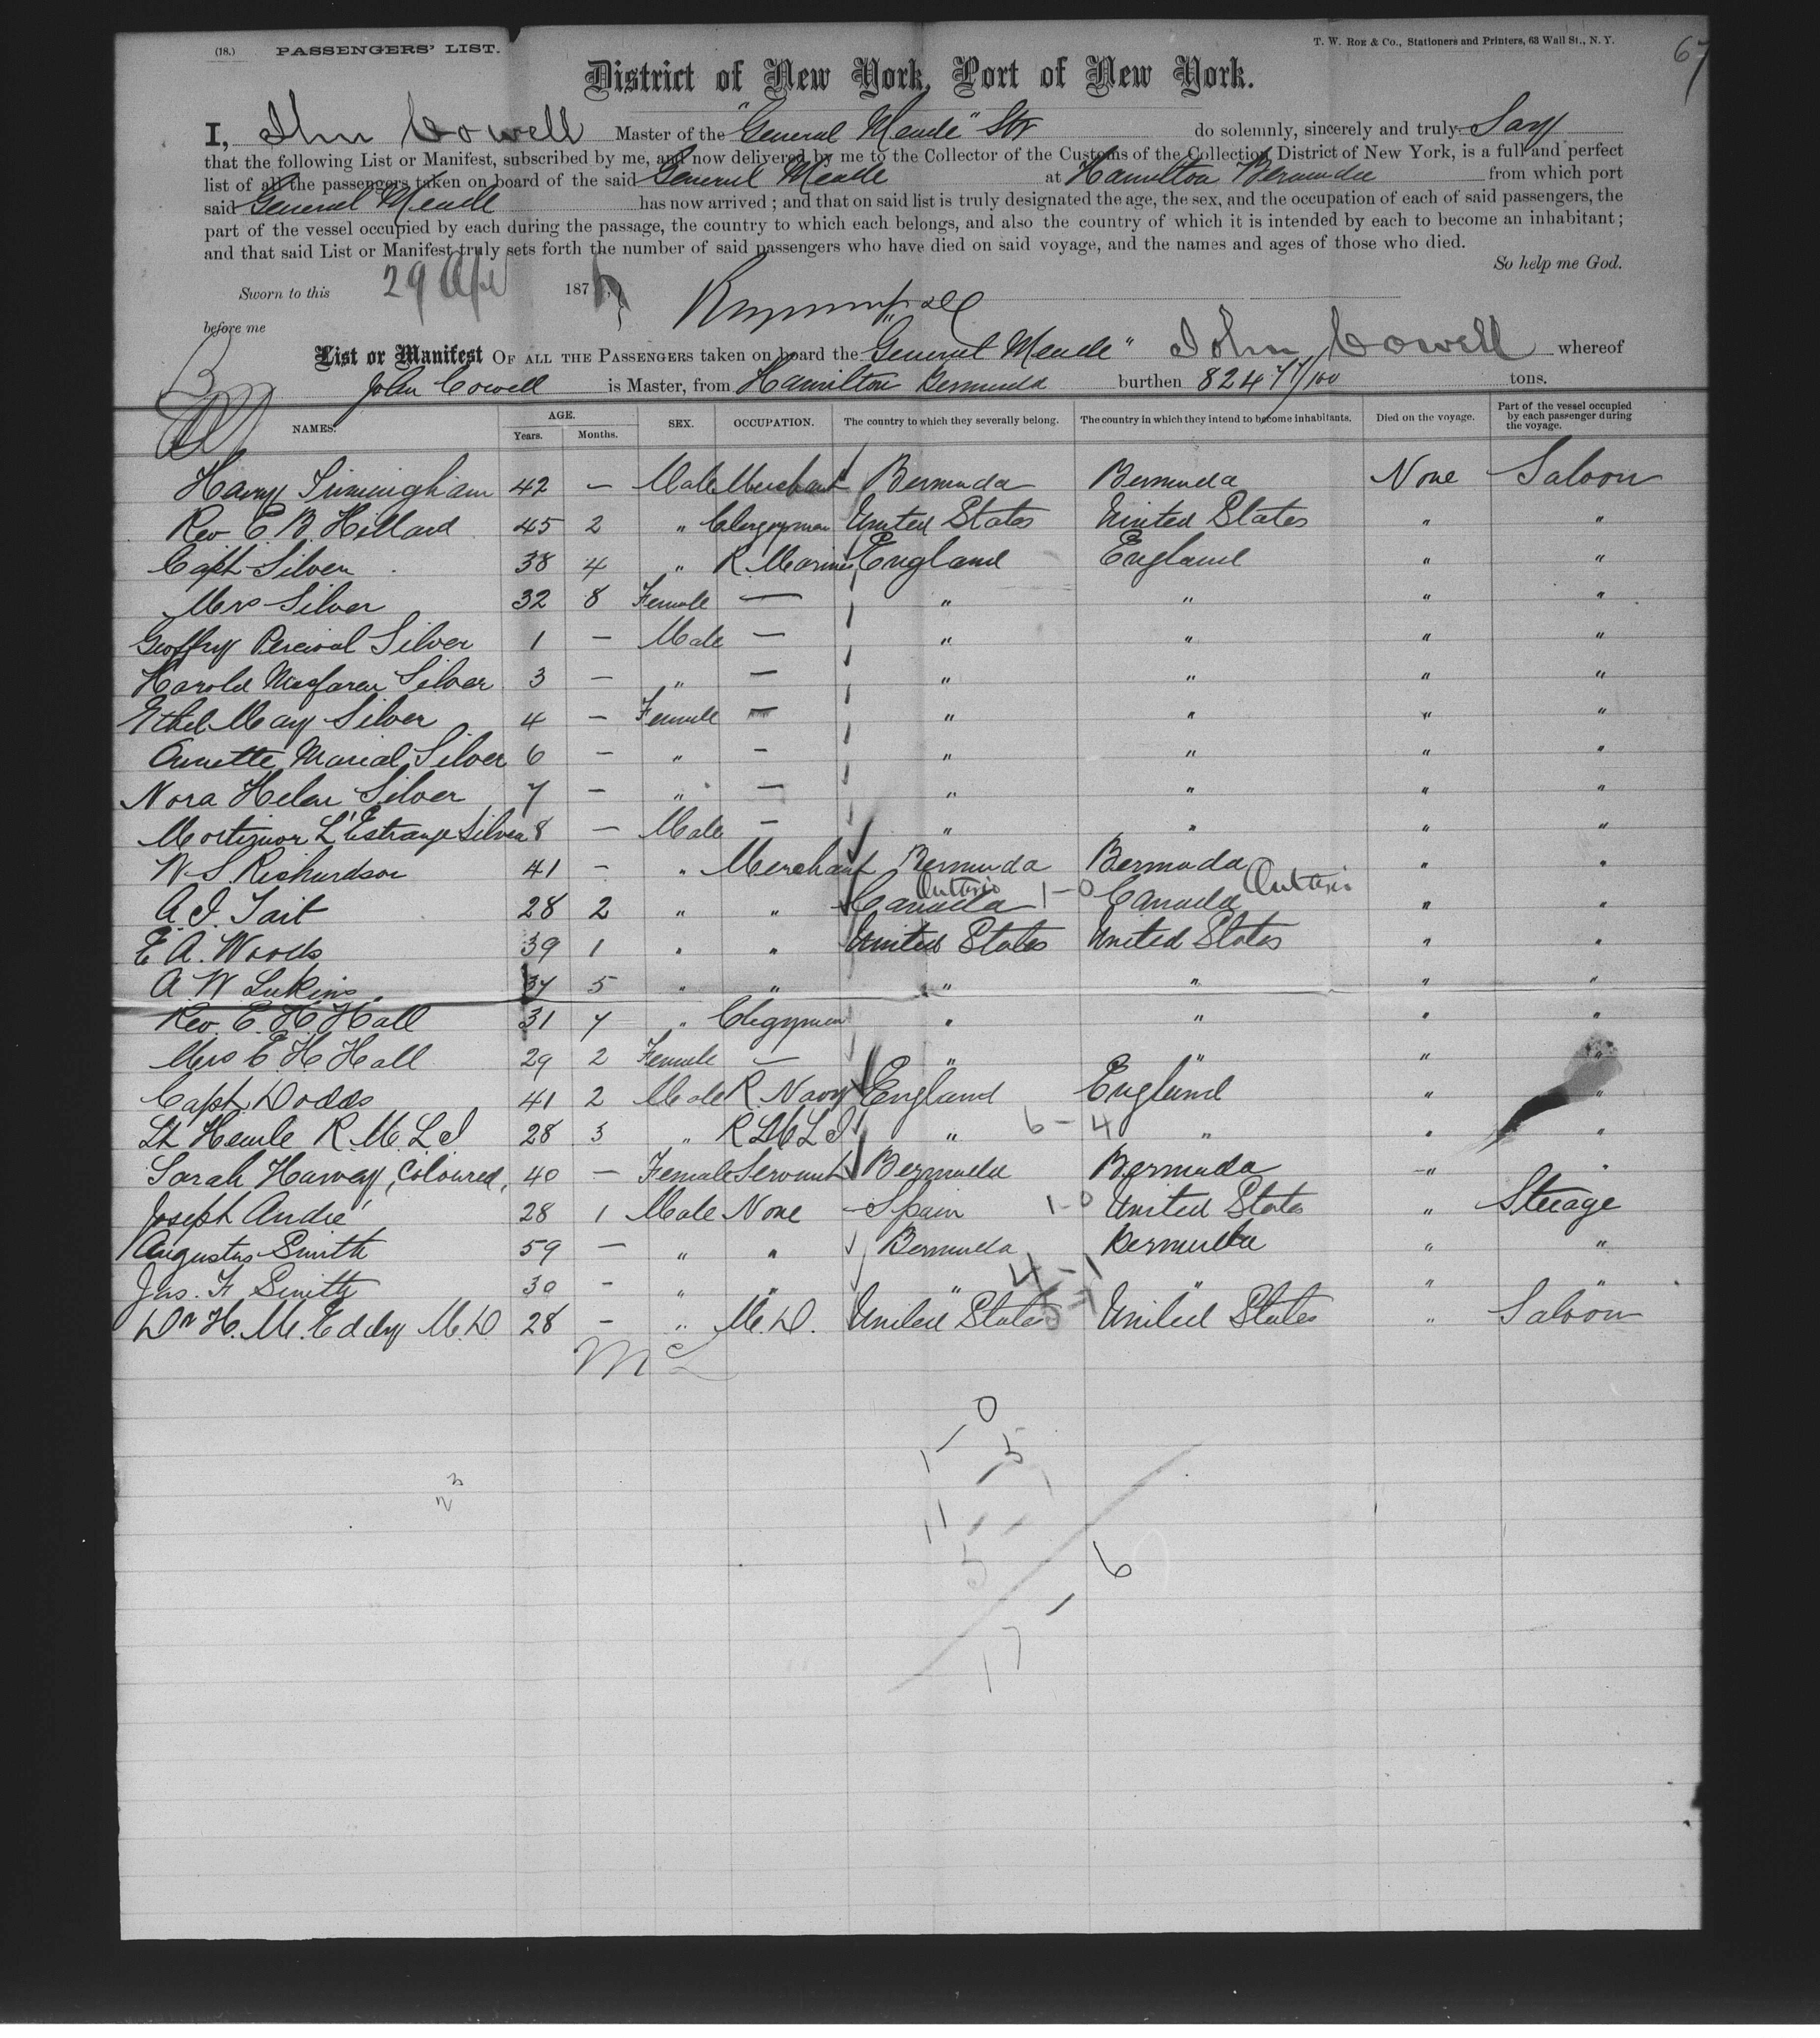 (18.) PASSENGERS' LIST.
T. W. Roe & Co., Stationers and Printers, 63 Wall St., N. Y.
67
District of New York, Port of New York.
I, John Cowell Master of the "General Meade" Str do solemnly, sincerely and truly Say
that the following List or Manifest, subscribed by me, and now delivered by me to the Collector of the Customs of the Collection District of New York, is a full and perfect
list of all the passengers taken on board of the said General Meade at Hamilton Bermuda from which port
said General Meade has now arrived ; and that on said list is truly designated the age, the sex, and the occupation of each of said passengers, the
part of the vessel occupied by each during the passage, the country to which each belongs, and also the country of which it is intended by each to become an inhabitant ;
and that said List or Manifest truly sets forth the number of said passengers who have died on said voyage, and the names and ages of those who died.
So help me God.
Sworn to this 29 Apl 187
before me
List or Manifest OF ALL THE PASSENGERS taken on board the "General Meade" John Cowell whereof
John Cowell is Master, from Hamilton Bermuda burthen 824 77/100 tons.
NAMES. AGE. Years. Months. SEX. OCCUPATION. The country to which they severally belong. The country in which they intend to become inhabitants. Died on the voyage. Part of the vessel occupied by each passenger during the voyage.
Harry Trimingham 42 — Male Merchant Bermuda Bermuda None Saloon
Rev. E. B. Hillard 45 2 " Clergyman United States United States " "
Capt Silver 38 4 " R. Marines England England " "
Mrs Silver 32 8 Female — " " " "
Geoffry Percival Silver 1 — Male — " " " "
Harold Macfaren Silver 3 — " — " " " "
Ethel May Silver 4 — Female — " " " "
Annette Marial Silver 6 — " — " " " "
Nora Helen Silver 7 — " — " " " "
Mortimor L'Estrange Silver 8 — Male — " " " "
W S Richardson 41 — " Merchant Bermuda Bermuda " "
A. I. Tait 28 2 " " Canada Ontario 1-0 Canada Ontario " "
E A. Woods 39 1 " " United States United States " "
A. W Lukins 37 5 " " " " " "
Rev. E. H. Hall 31 7 " Clegyman " " " "
Mrs E. H. Hall 29 2 Female — " " " "
Capt. Dodds 41 2 Male R. Navy England England " "
Lt Hearle R. M. L I 28 3 " R L M L I " 6-4 " " "
Sarah Harvey, Coloured, 40 — Female Servant Bermuda Bermuda " "
Joseph André 28 1 Male None Spain 1-0 United States " Steeage
Augustus Smith 59 — " " Bermuda Bermuda " "
Jas. F. Smith 30 — " " " 4-1 " " "
Dr H. M. Eddy M. D 28 — " M. D. United States United States " Saloon
1-0
5
11
5
6
17